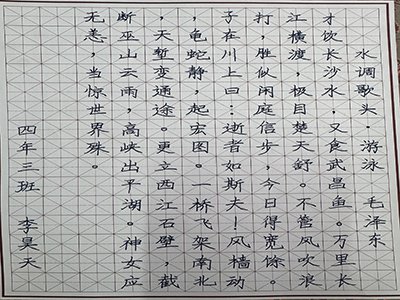 水调歌头·游泳 毛泽东
才饮长沙水，又食武昌鱼。万里长
江横渡，极目楚天舒。不管风吹浪
打，胜似闲庭信步，今日得宽馀。
子在川上曰：逝者如斯夫！风樯动
，龟蛇静，起宏图。一桥飞架南北
，天堑变通途。更立西江石壁，截
断巫山云雨，高峡出平湖。神女应
无恙，当惊世界殊。
四年三班 李昊天